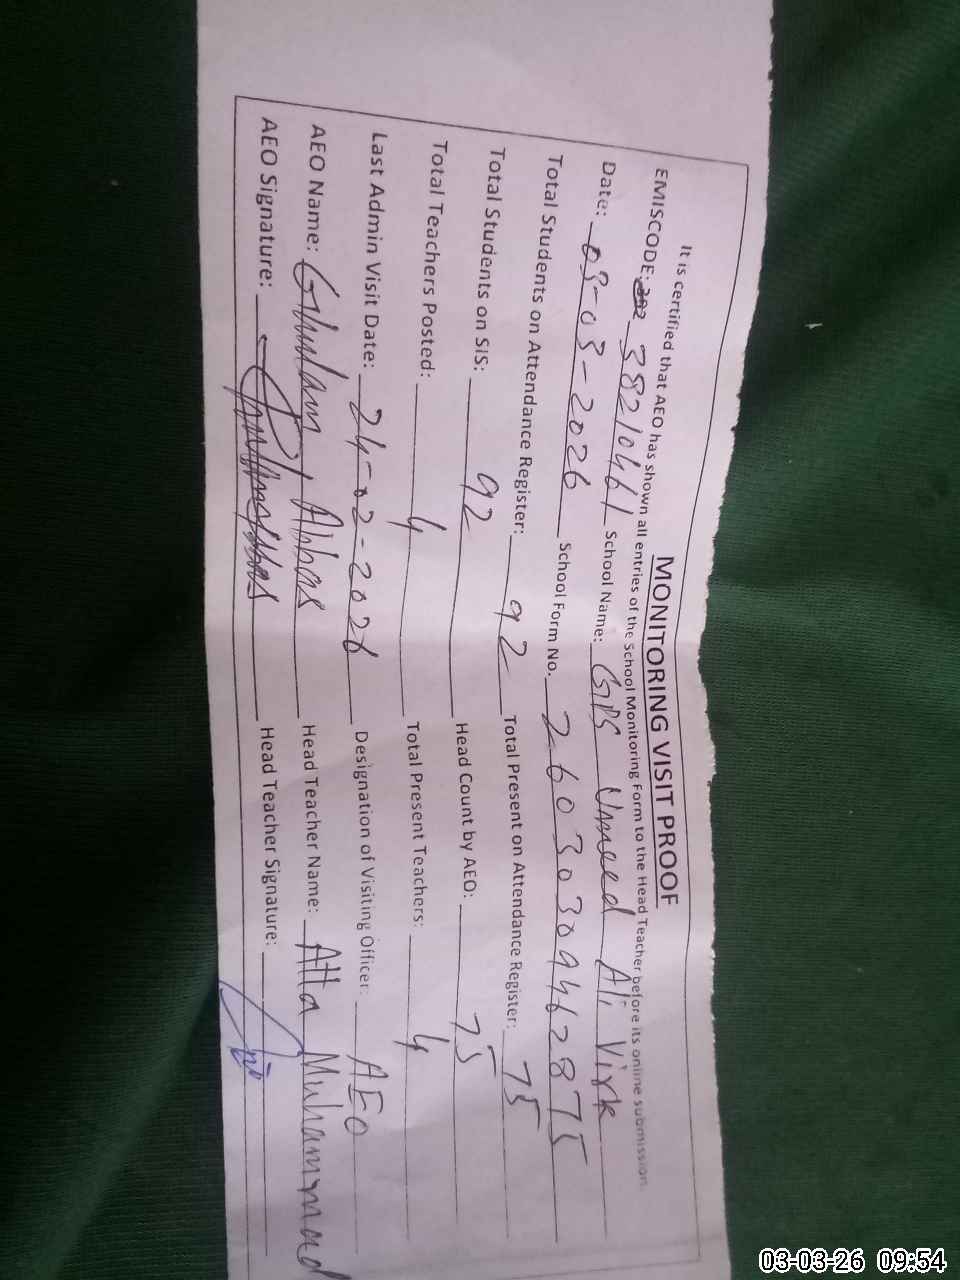 MONITORING VISIT PROOF
It is certified that AEO has shown all entries of the School Monitoring Form to the Head Teacher before its online submission.
EMISCODE: 38210461 School Name: GPS Umeed Ali Virk
Date: 03-03-2026 School Form No. 26030309462875
Total Students on Attendance Register: 92 Total Present on Attendance Register: 75
Total Students on SIS: 92 Head Count by AEO: 75
Total Teachers Posted: 4 Total Present Teachers: 4
Last Admin Visit Date: 24-02-2026 Designation of Visiting Officer: AEO
AEO Name: Ghulam Abbas Head Teacher Name: Atta Muhammad
AEO Signature: Head Teacher Signature:
03-03-26 09:54